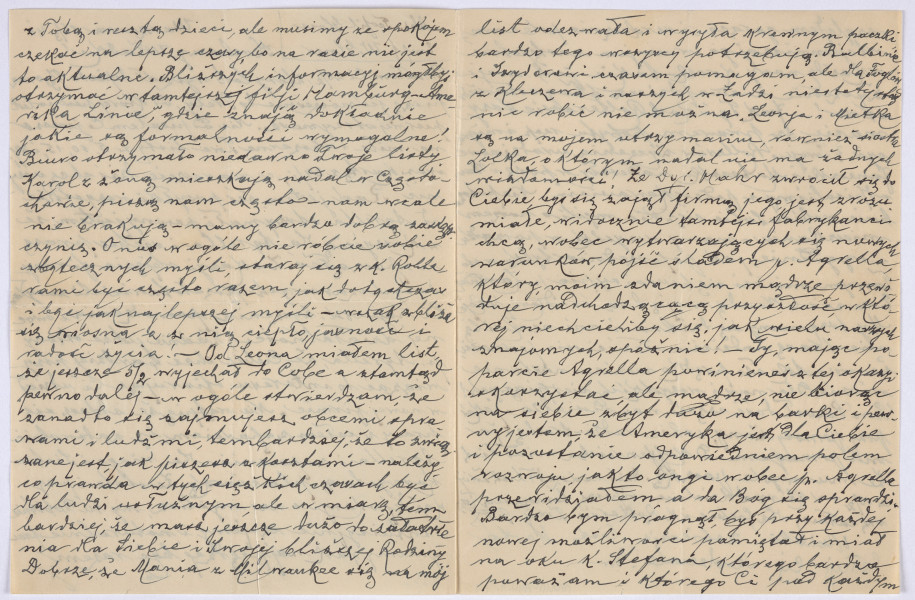 z Tobą i resztą dzieci, ale musimy ze spokojem
czekać na lepsze czasy, bo na razie nie jest
to aktualne. Bliższych informacyj mógłbyś
otrzymać w tamtejszej filji Hamburg-Ame-
rika Linie, gdzie znają dokładnie
jakie są formalności wymagalne!
Biuro otrzymało niedawno Twoje listy
Karol z żoną mieszkają nadal w Często-
chowie, piszą nam często - nam wcale
nie brakują - mamy bardzo dobrą
czynią. O nas w ogóle nie róbcie sobie
zbytecznych myśli, staraj się z k. Rolle-
rami być często razem, jak dotychczas
i być jak najlepszej myśli - wszak zbliża
się wiosna a z nią ciepło, jasność i
radość życia. - Od Leona miałem list,
że jeszcze 5/2 wyjechał do Kobe a stamtąd
pewno dalej - w ogóle stwierdzam, że
zanadto się zajmujesz obcemi spra-
wami i ludźmi, tembardziej, że to zwią-
zane jest, jak piszesz z kosztami - należy
co prawda w tych ciężkich czasach być
dla ludzi usłużnym, ale w miarę, tem
bardziej, że masz jeszcze dużo do załatwie-
nia dla Siebie i Twojej bliższej Rodziny
Dobrze, że Mania z Milwaukee się na mój
list odezwała i wysyła krewnym paczki
bardzo tego wszyscy potrzebują.
i Izydorowi czasem pomagam, ale dla
z Kleczewa i naszych w Łodzi niestety
nic robić nie można. Leonja i Mietka
są na mojem utrzymaniu, również siostra
Lolka, o którym nadal nie ma żadnych
wiadomości! Że Dyr. Mahr zwrócił się do
Ciebie byś się zajął firmą jego jest zrozu-
miałe, widocznie tamtejsi fabrykanci
chcą, wobec wytwarzających się nowych
warunków, pójść śladem p. Agrella,
który, moim zdaniem mądrze przewi-
duje nadchodzącą przyszłość w któ-
rej niechcieliby się, jak wielu naszych
znajomych, spóźnić! - Ty, mając po-
parcie Agrella powinieneś z tej okazji
skorzystać ale mądrze, nie biorąc
na siebie zbyt dużo na barki i pew-
ny jestem, że Ameryka jest dla Ciebie
i pozostanie odpowiedniem polem
rozwoju jak to ongi wobec p. Agrella
przewidziałem a da Bóg się sprawdzi.
Bardzo bym pragnął byś przy każdej
nowej możliwości pamiętał i miał
na oku k. Stefana, którego bardzo
poważam i którego Ci pod każdym